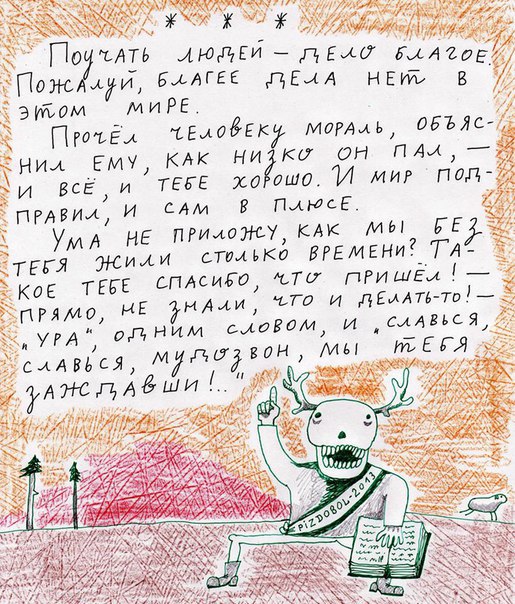 * * *
Поучать людей – дело благое.
Пожалуй, благее дела нет в
этом мире.
Прочёл человеку мораль, объяс-
нил ему, как низко он пал, –
и всё, и тебе хорошо. И мир под-
правил, и сам в плюсе.
Ума не приложу, как мы без
тебя жили столько времени? Та-
кое тебе спасибо, что пришёл! –
прямо, не знали, что и делать-то! –
„ура“, одним словом, и „славься,
славься, мудозвон, мы тебя
заждавши!..“
PIZDOBOL-2013